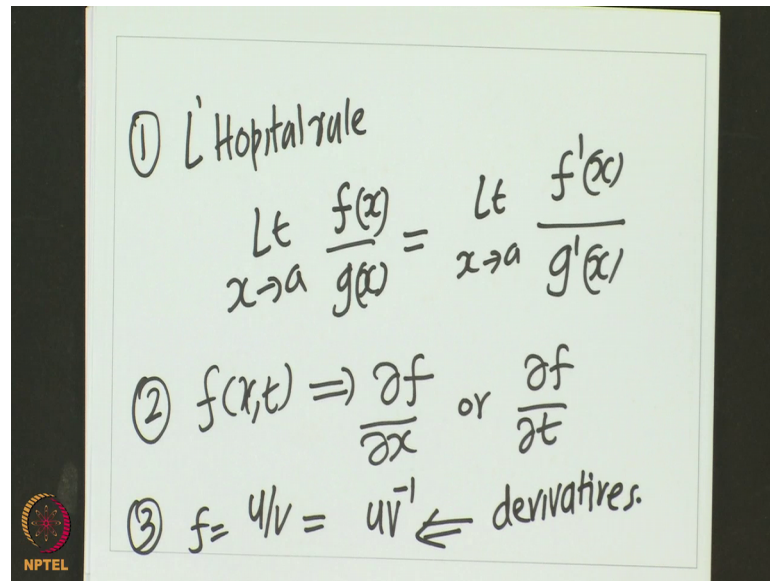 ① L'Hopital rule
Lt x→a f(x)/g(x) = Lt x→a f'(x)/g'(x)
② f(x,t) ⇒ ∂f/∂x or ∂f/∂t
③ f = u/v = uv⁻¹ ⇐ derivatives.
NPTEL